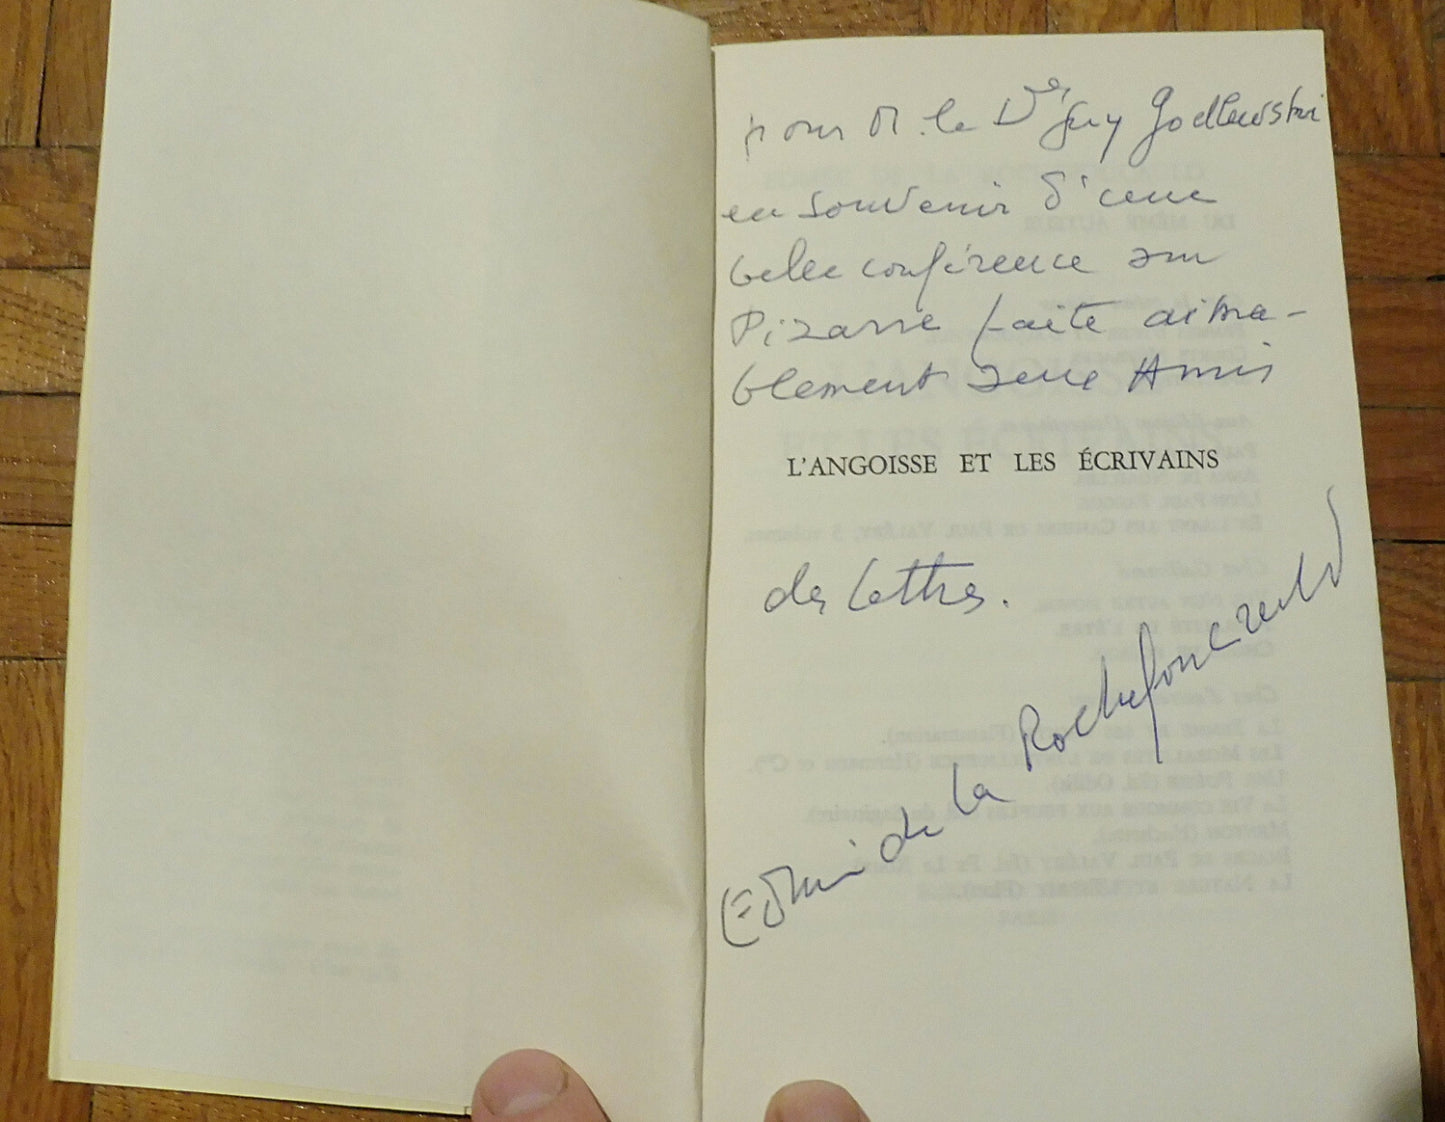 pour M. le Dr Guy Godlewski
en souvenir d'une
belle conférence sur
Pizarre faite aima-
blement aux Amis
L'ANGOISSE ET LES ÉCRIVAINS
des lettres.
Edmée de la Rochefoucauld